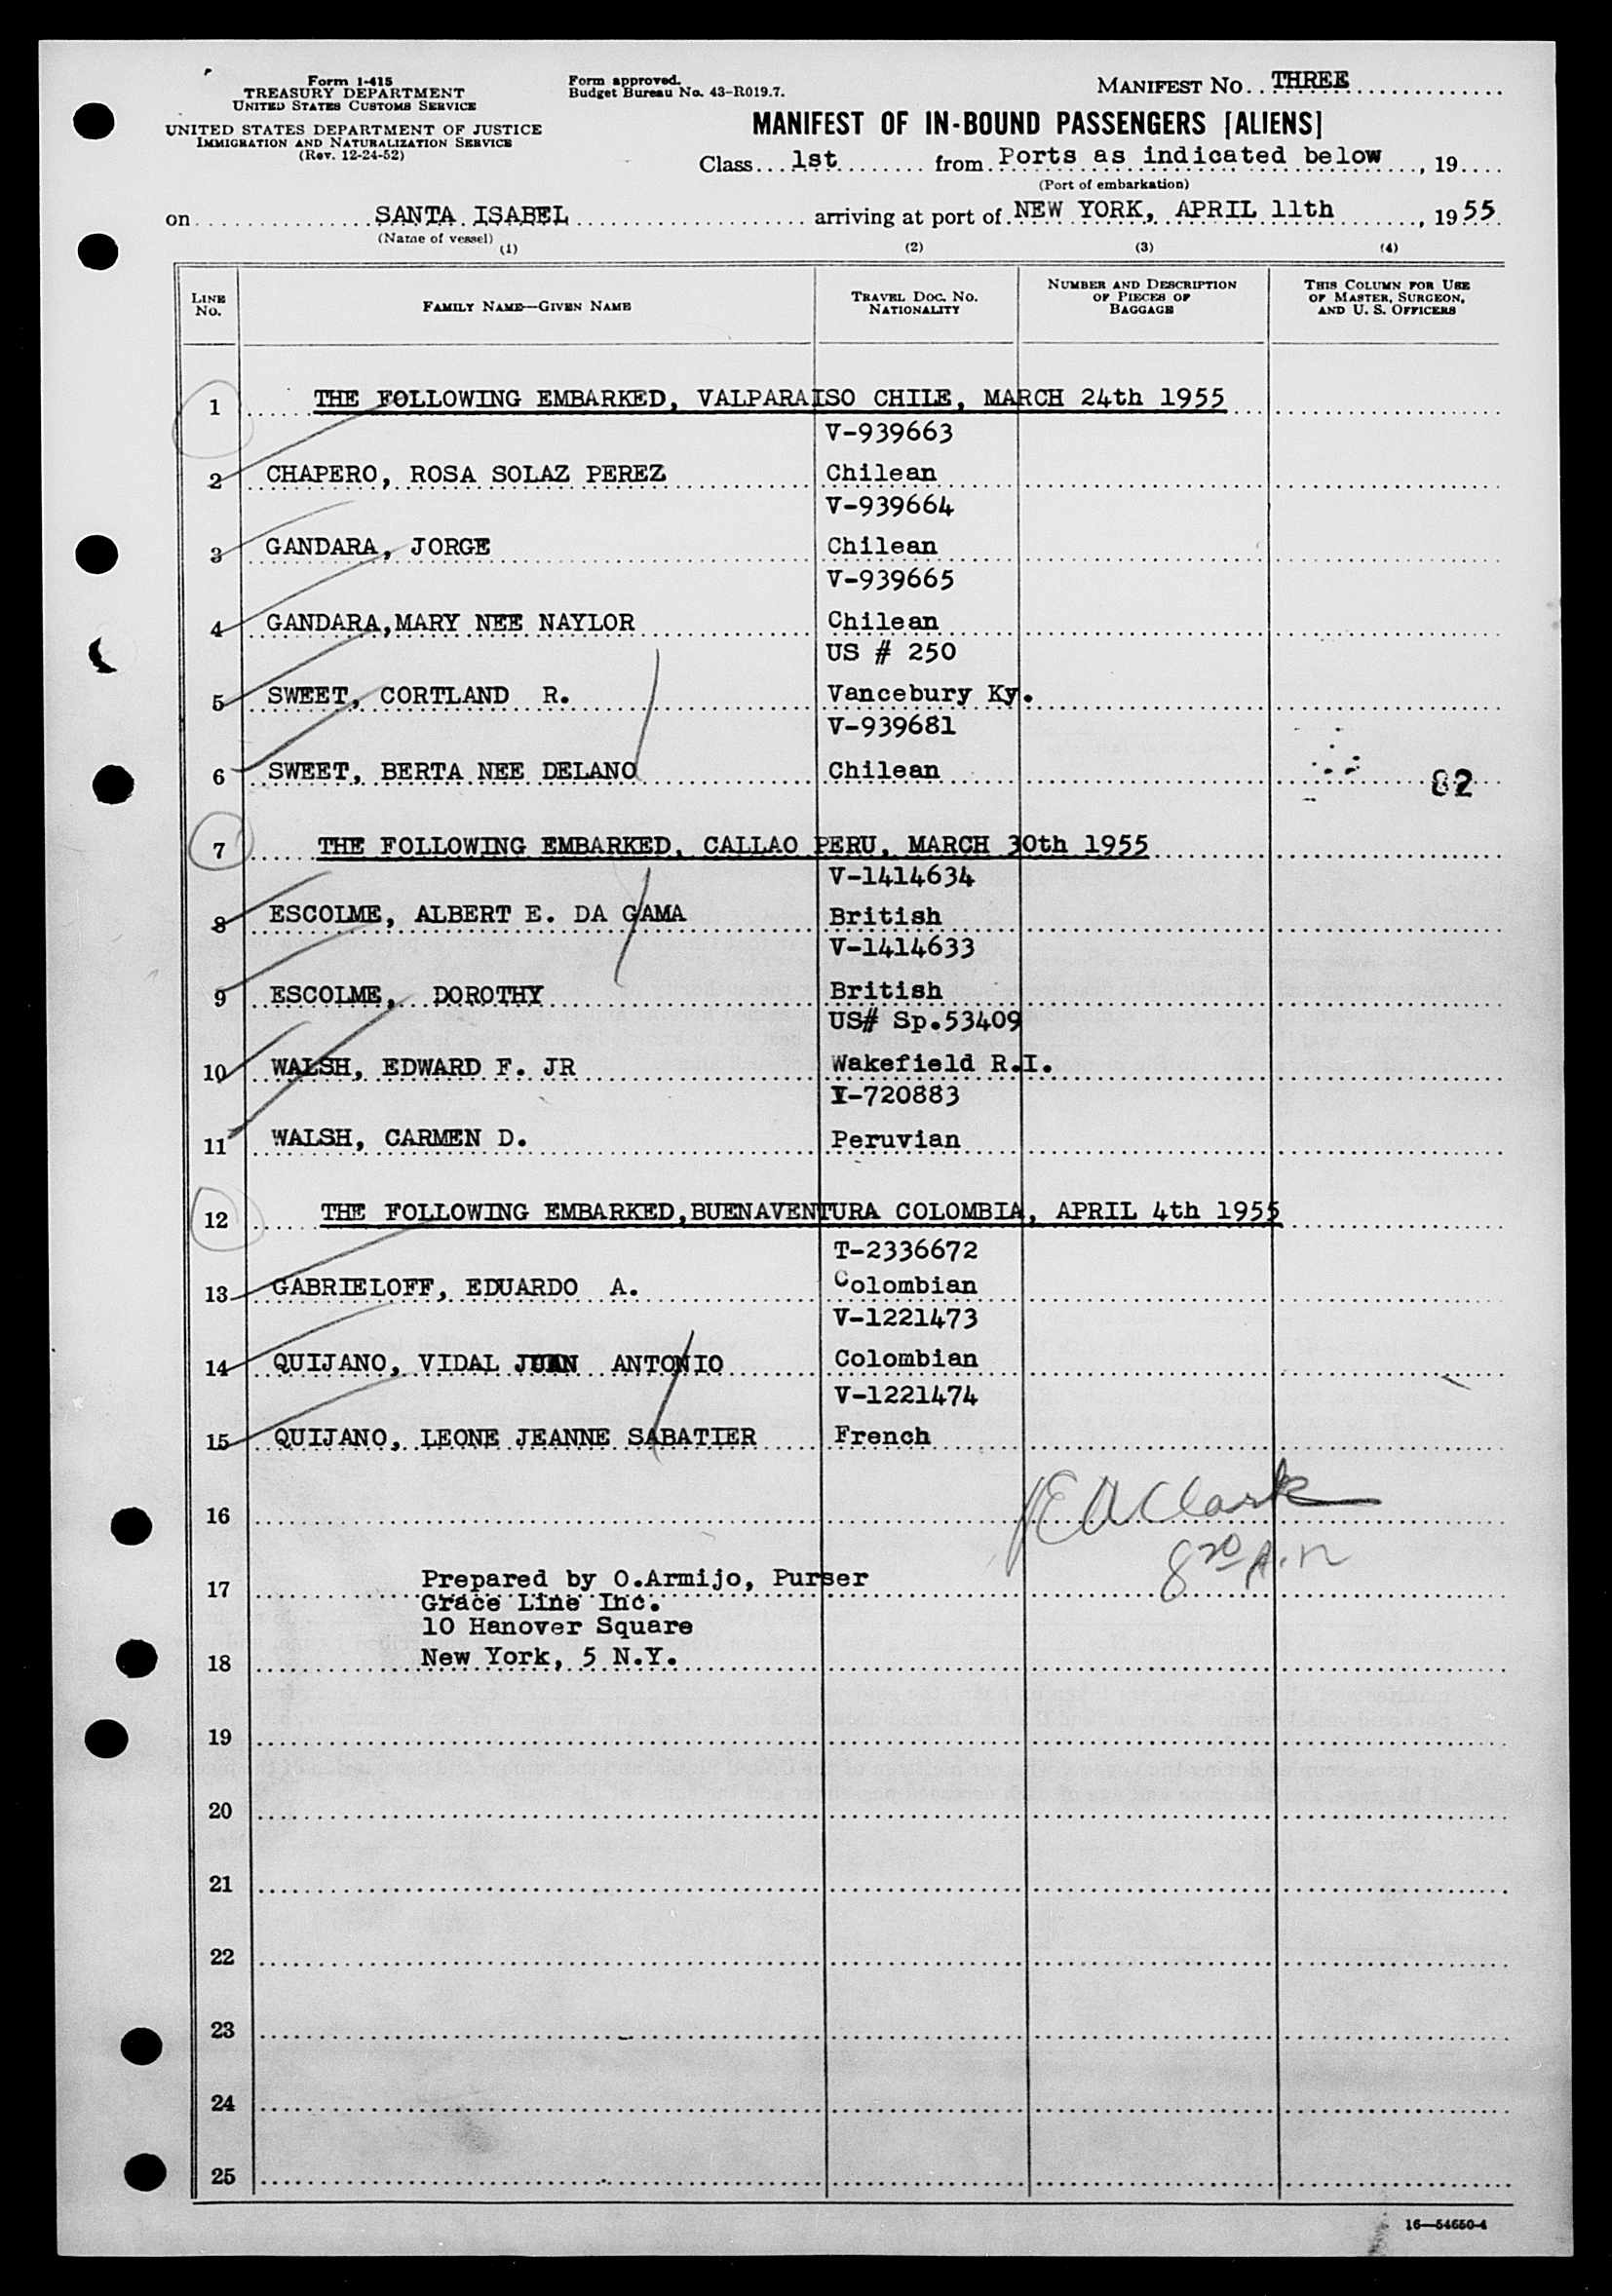 Form I-415
TREASURY DEPARTMENT
UNITED STATES CUSTOMS SERVICE
UNITED STATES DEPARTMENT OF JUSTICE
IMMIGRATION AND NATURALIZATION SERVICE
(Rev. 12-24-52)
Form approved.
Budget Bureau No. 43-R019.7.
MANIFEST NO. THREE
MANIFEST OF IN-BOUND PASSENGERS [ALIENS]
Class 1st from Ports as indicated below, 19
(Port of embarkation)
on SANTA ISABEL arriving at port of NEW YORK, APRIL 11th, 1955
(Name of vessel)
(1) (2) (3) (4)
LINE NO.
FAMILY NAME—GIVEN NAME
TRAVEL DOC. NO.
NATIONALITY
NUMBER AND DESCRIPTION
OF PIECES OF
BAGGAGE
THIS COLUMN FOR USE
OF MASTER, SURGEON,
AND U. S. OFFICERS
1 THE FOLLOWING EMBARKED, VALPARAISO CHILE, MARCH 24th 1955
V-939663
2 CHAPERO, ROSA SOLAZ PEREZ Chilean
V-939664
3 GANDARA, JORGE Chilean
V-939665
4 GANDARA,MARY NEE NAYLOR Chilean
US # 250
5 SWEET, CORTLAND R. Vancebury Ky.
V-939681
6 SWEET, BERTA NEE DELANO Chilean 82
7 THE FOLLOWING EMBARKED, CALLAO PERU, MARCH 30th 1955
V-1414634
8 ESCOLME, ALBERT E. DA GAMA British
V-1414633
9 ESCOLME, DOROTHY British
US# Sp.53409
10 WALSH, EDWARD F. JR Wakefield R.I.
-720883
11 WALSH, CARMEN D. Peruvian
12 THE FOLLOWING EMBARKED,BUENAVENTURA COLOMBIA, APRIL 4th 1955
T-2336672
13 GABRIELOFF, EDUARDO A. Colombian
V-1221473
14 QUIJANO, VIDAL JUAN ANTONIO Colombian
V-1221474
15 QUIJANO, LEONE JEANNE SABATIER French
16 EA Clark
17 Prepared by O.Armijo, Purser
Grace Line Inc.
10 Hanover Square
18 New York, 5 N.Y.
19
20
21
22
23
24
25
16—54650-4